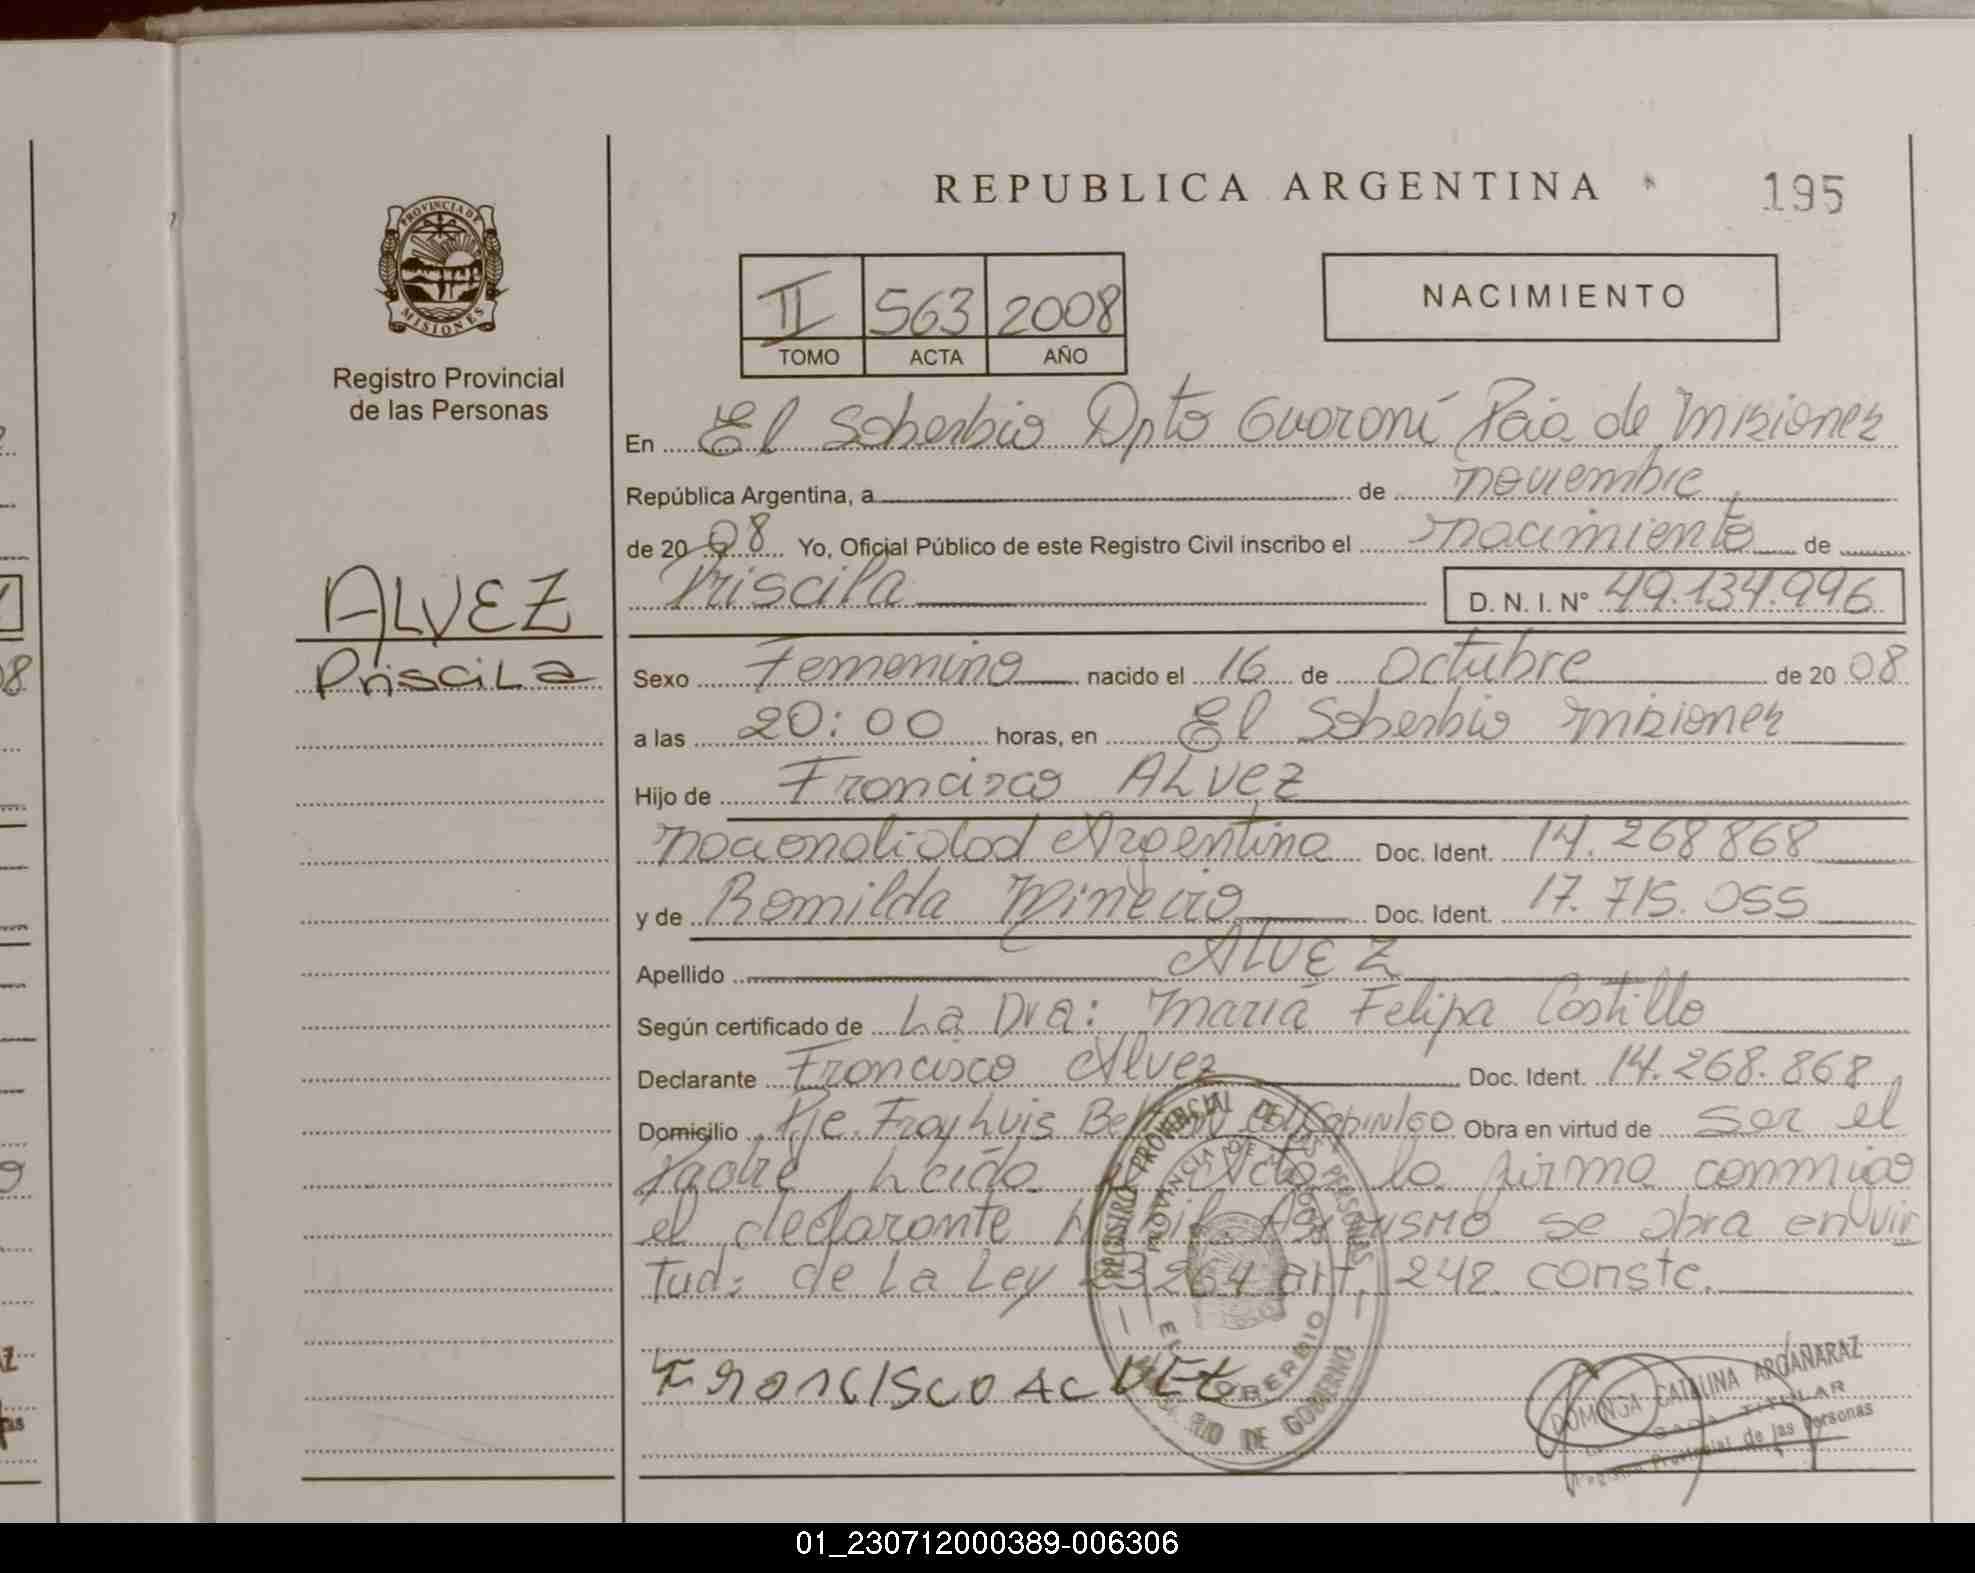 REPUBLICA ARGENTINA
195
PROVINCIA DE
MISIONES
Registro Provincial
de las Personas
II 563 2008
TOMO ACTA AÑO
NACIMIENTO
En El Soberbio Dpto Guaraní de Misiones
República Argentina, a de noviembre
de 20 08 Yo, Oficial Público de este Registro Civil inscribo el nacimiento de
Priscila D. N. I. N° 49.134.996
ALVEZ
Priscila
Sexo Femenino nacido el 16 de Octubre de 20 08
a las 20:00 horas, en El Soberbio Misiones
Hijo de Francisco ALVEZ
nacionalidad Argentina Doc. Ident. 14.268868
y de Romilda Doc. Ident. 17.715.055
Apellido ALVEZ
Según certificado de La Dra: María Felipa Costillo
Declarante Francisco Alvez Doc. Ident. 14.268.868
Domicilio Pje. Fray Luis Obra en virtud de ser el
Padre Leída Acta la firma conmigo
el declarante se obra en vir
tud: de La Ley 23264 art. 242 conste.
FRANCISCO ALVEZ
REGISTRO PROVINCIAL DE LAS PERSONAS
PROVINCIA DE MISIONES
EL SOBERBIO
DE GOBIERNO
DOMINGA CATALINA ARGAÑARAZ
TITULAR
Registro Provincial de las Personas
01_230712000389-006306